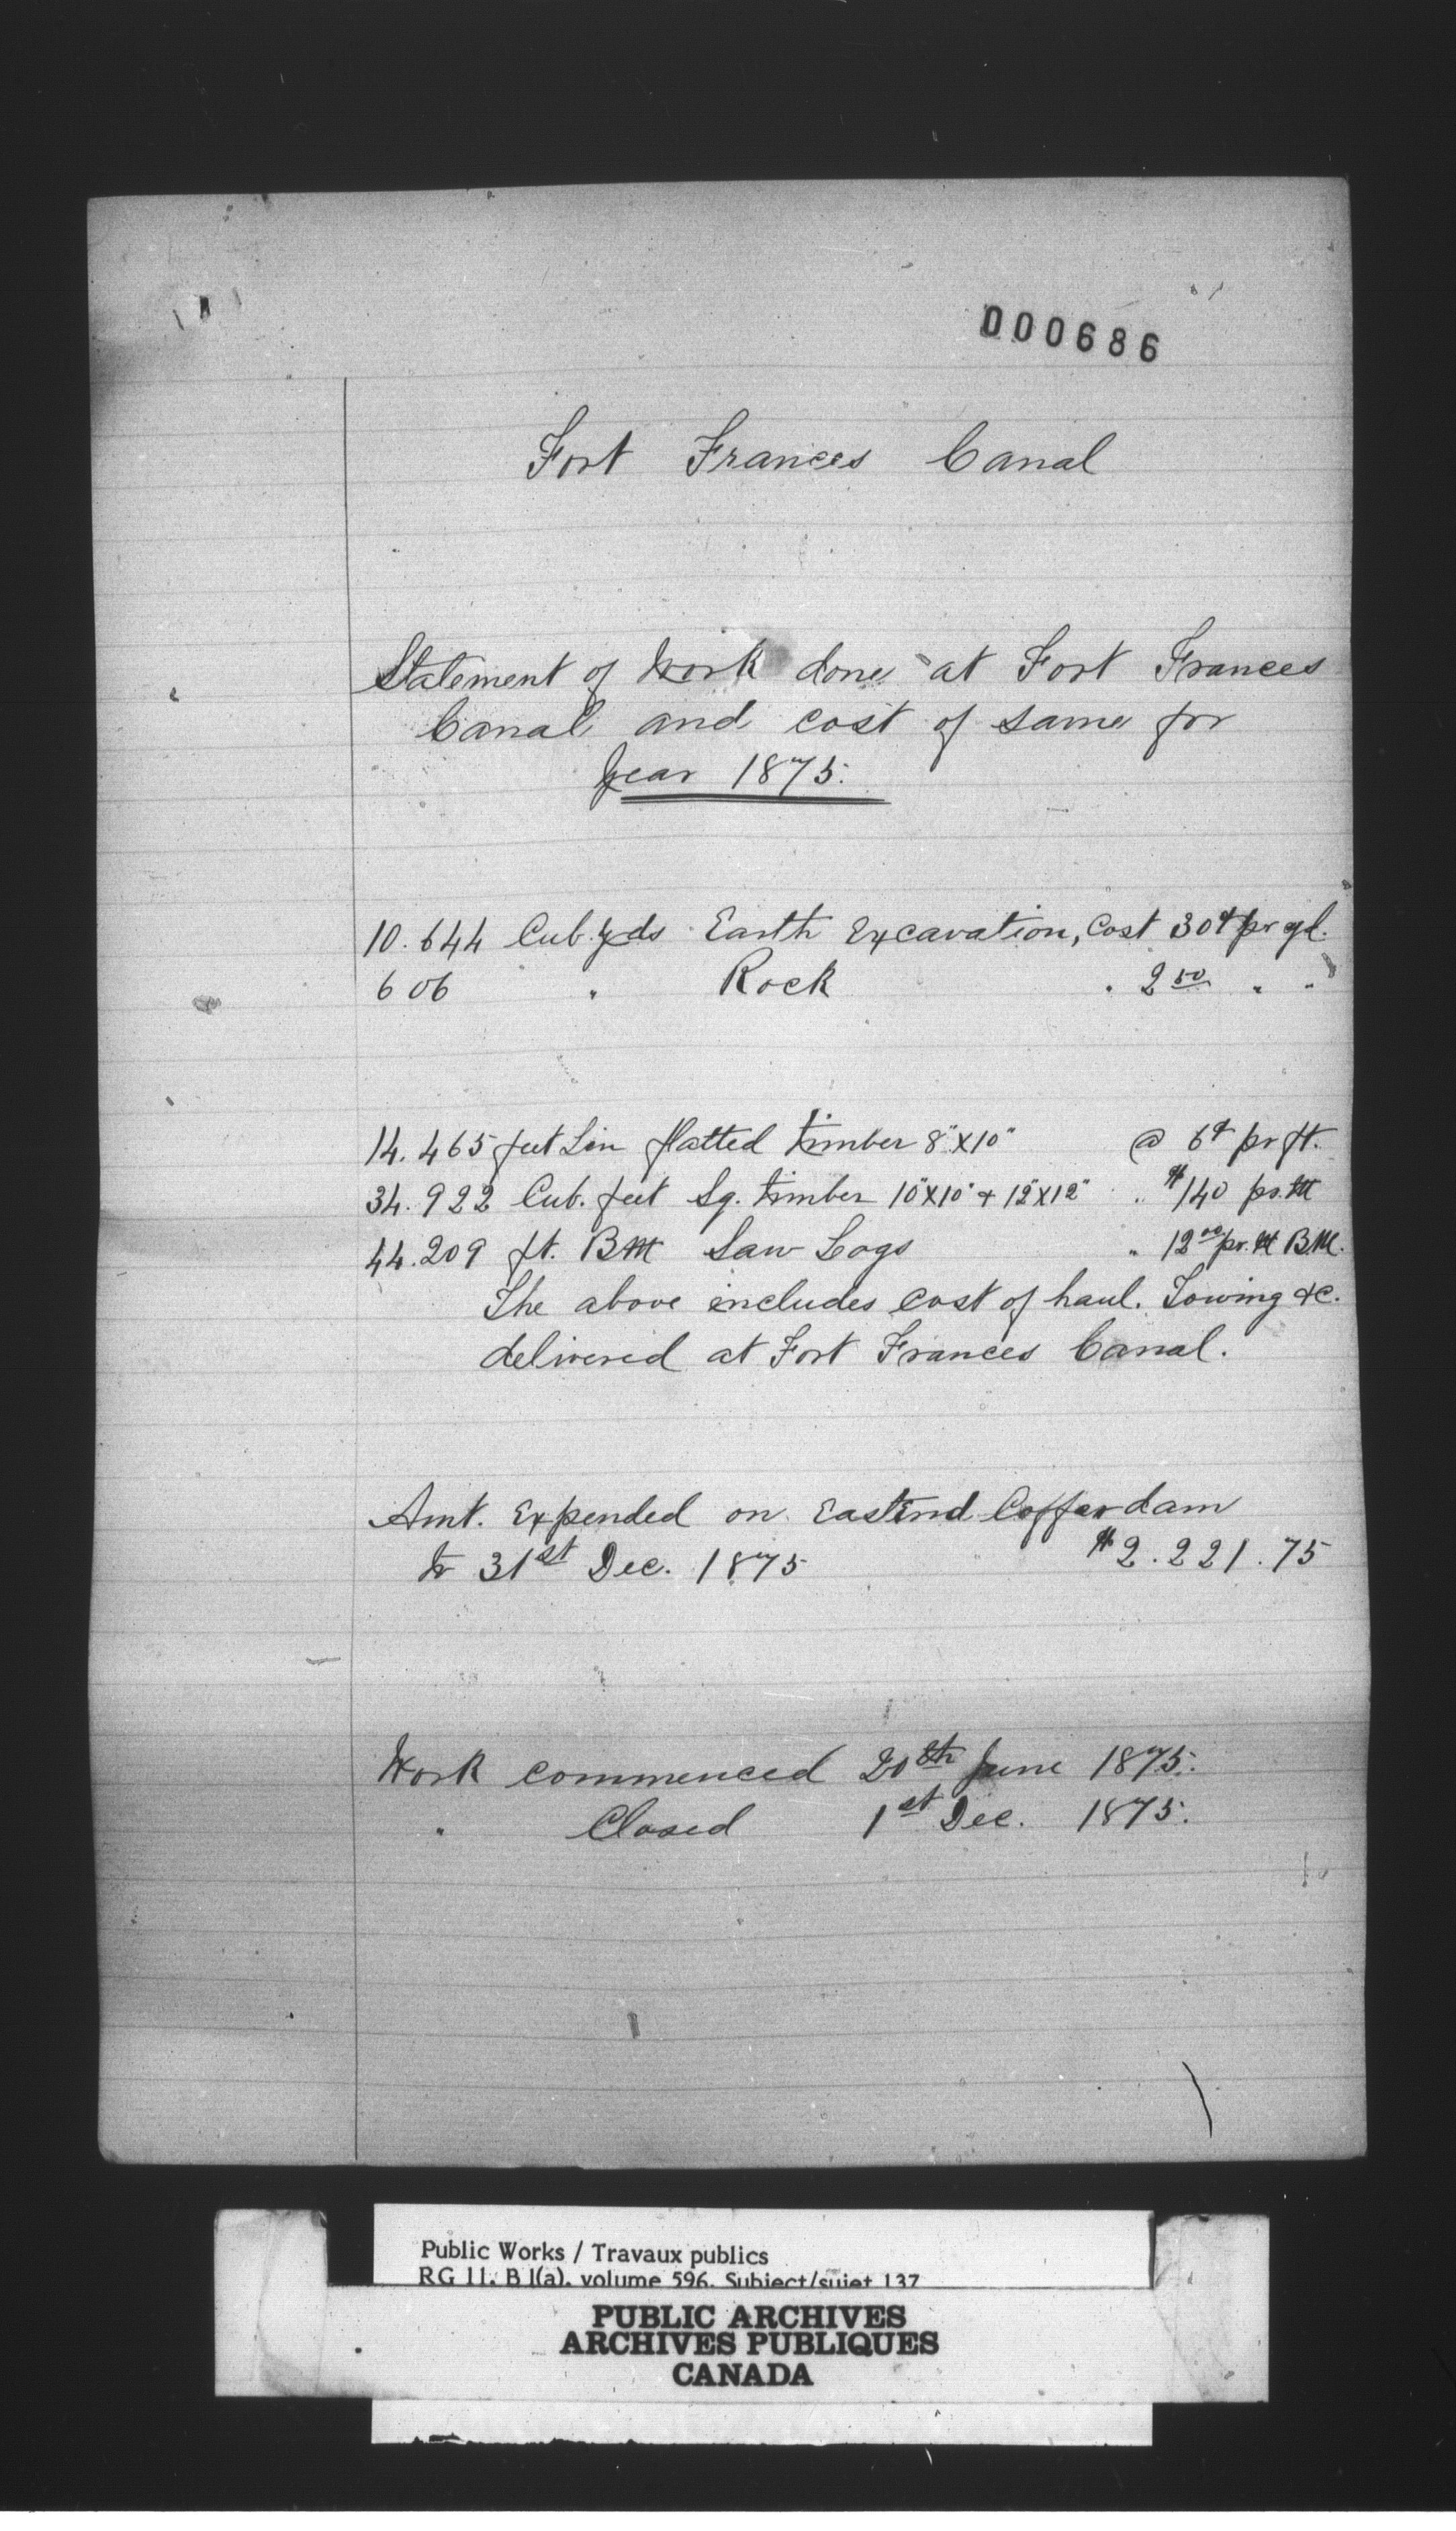 000686
Fort Frances Canal
Statement of Work done at Fort Frances
Canal and cost of same for
Year 1875.
10.644 Cub. yds Earth Excavation, Cost 30¢ pr yd.
606 " Rock " 2 50 " "
14.465 feet Lin flatted timber 8"X10" @ 6¢ pr ft.
34.922 Cub. feet Sq. timber 10"X10" + 12"X12" " $140 pr. M
44.209 ft. BM Saw Logs " 12 00 pr. M BM.
The above includes cost of haul. Towing &c.
delivered at Fort Frances Canal.
Amt. Expended on East End Cofferdam
to 31st Dec. 1875 $2.221.75
Work commenced 20th June 1875.
" Closed 1st Dec. 1875.
Public Works / Travaux publics
RG 11, B 1(a), volume 596, Subject/sujet 137
PUBLIC ARCHIVES
ARCHIVES PUBLIQUES
CANADA